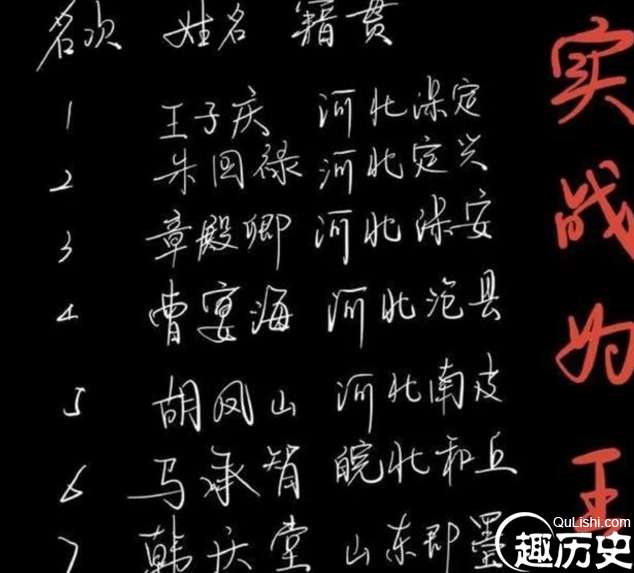 名次 姓名 籍贯
1 王子庆 河北保定
2 朱国禄 河北定兴
3 章殿卿 河北保安
4 曹宴海 河北沧县
5 胡凤山 河北南皮
6 马承智 皖北和丘
7 韩庆堂 山东即墨
实战为王
QuLishi.com
趣历史